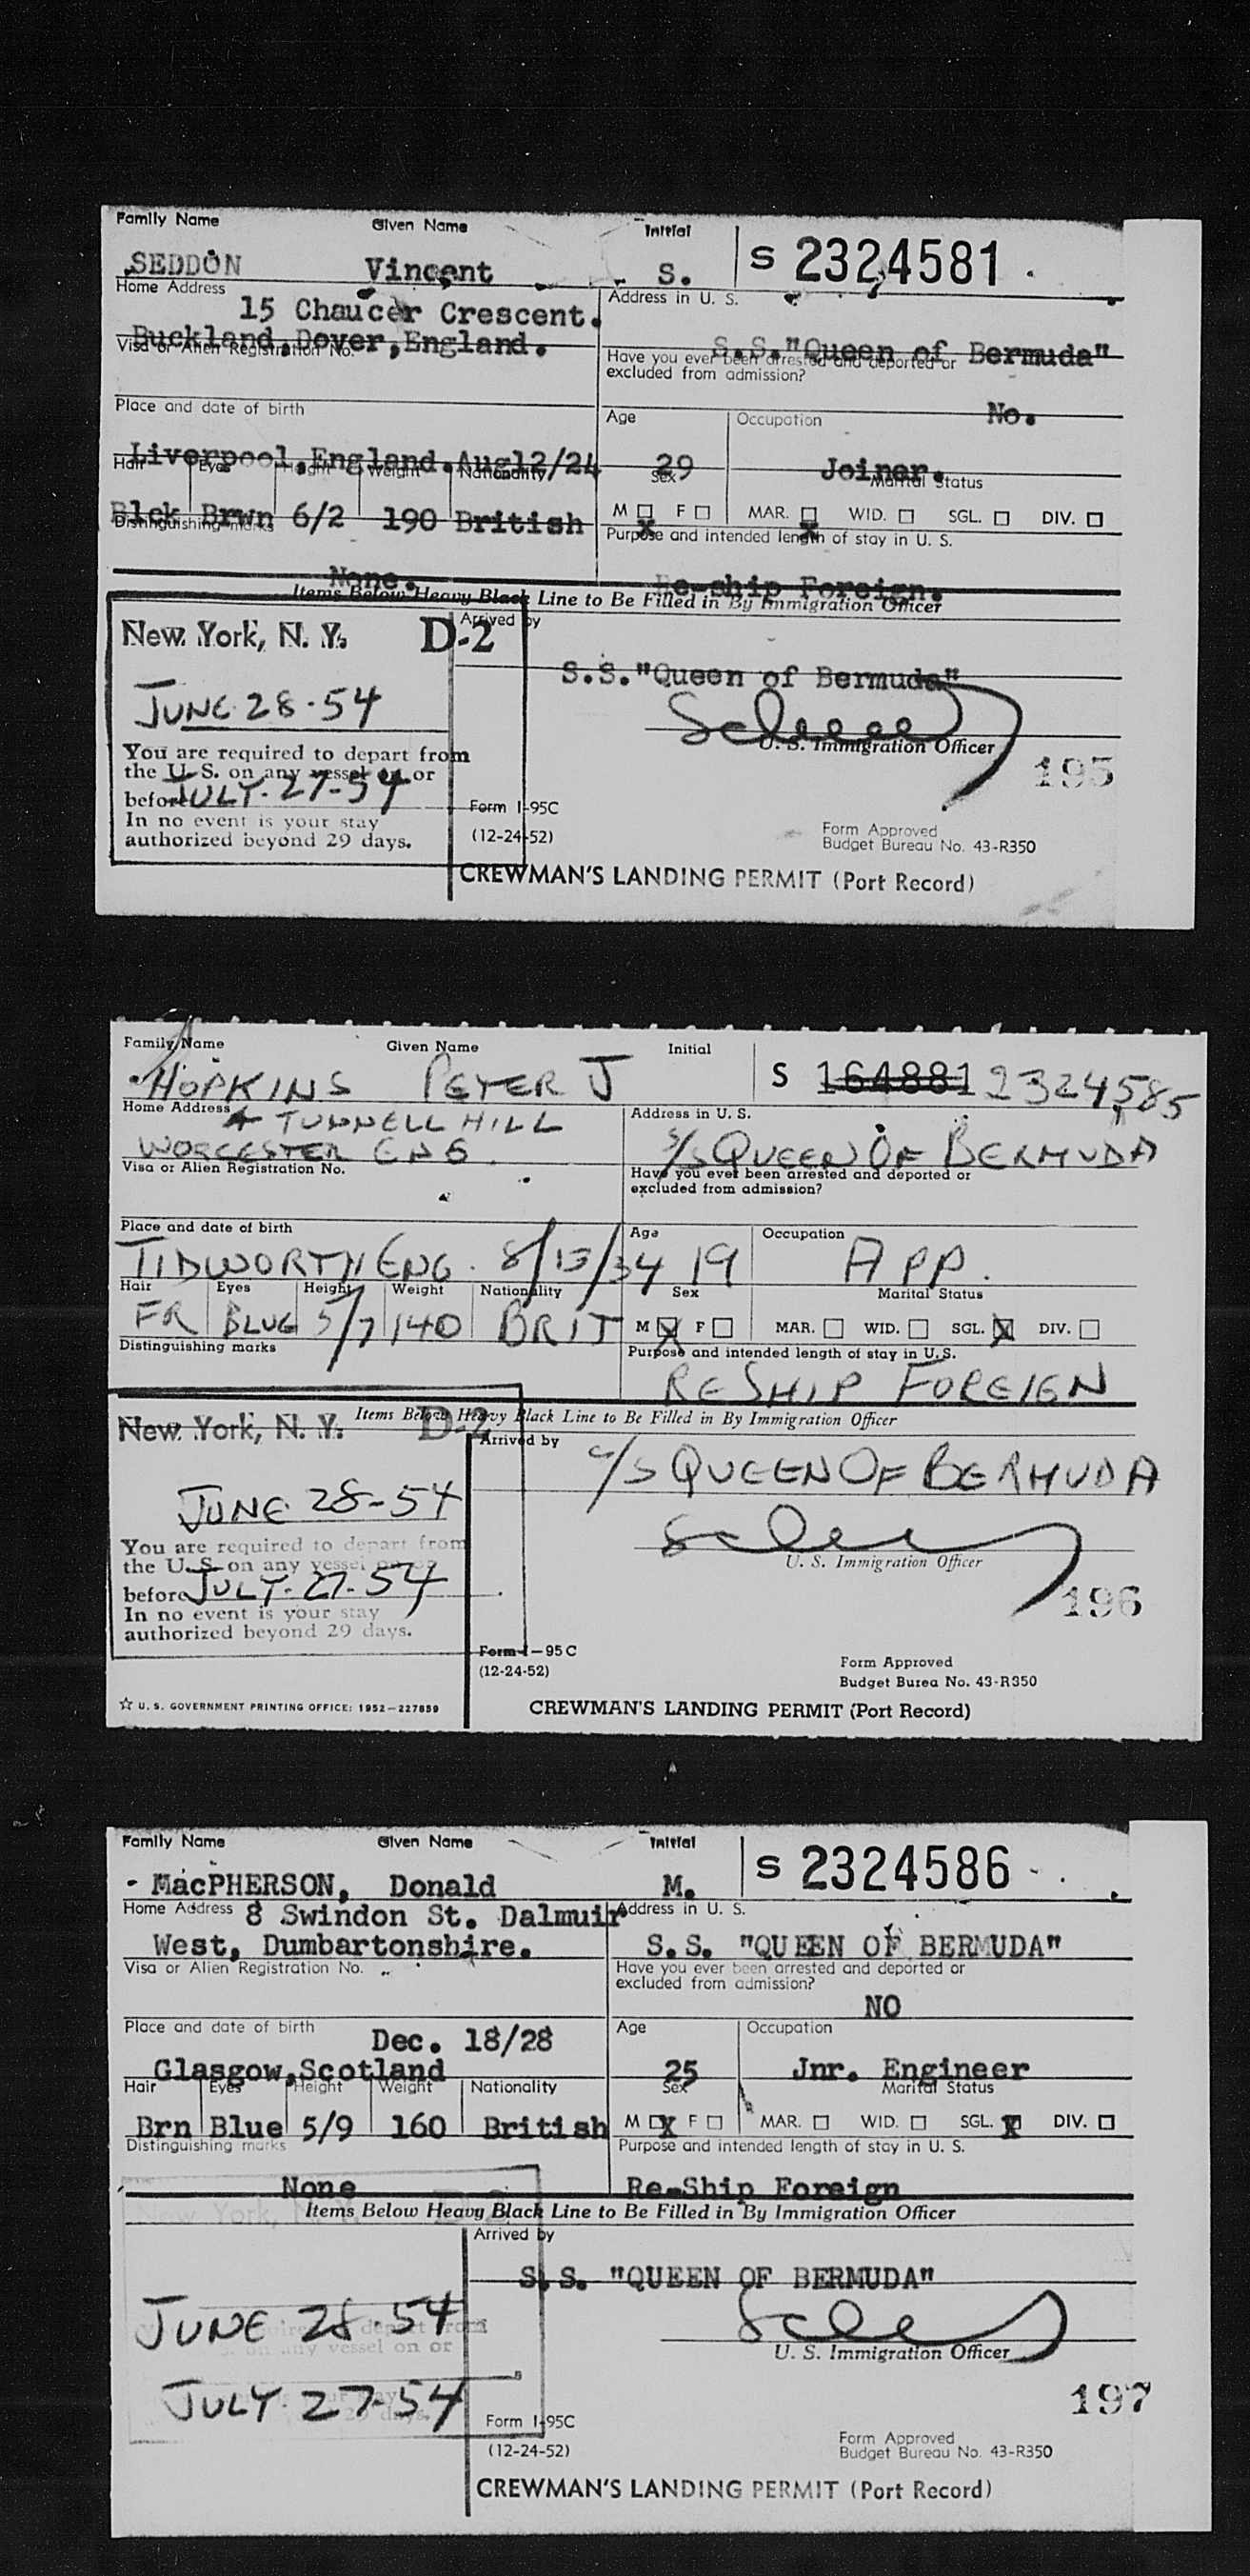 Family Name Given Name Initial
SEDDON Vincent S. S 2324581
Home Address Address in U. S.
15 Chaucer Crescent.
Buckland,Dover,England. S.S."Queen of Bermuda"
Visa or Alien Registration No. Have you ever been arrested and deported or
excluded from admission?
No.
Place and date of birth Age Occupation
Liverpool,England.Aug12/24 29 Joiner.
Hair Eyes Height Weight Nationality Sex Marital Status
Blck Brwn 6/2 190 British M X F MAR. X WID. SGL. DIV.
Distinguishing marks Purpose and intended length of stay in U. S.
None. Re-ship Foreign.
Items Below Heavy Black Line to Be Filled in By Immigration Officer
New York, N. Y. D-2 Arrived by
S.S."Queen of Bermuda"
JUNE 28-54
U. S. Immigration Officer
You are required to depart from
the U. S. on any vessel on or
before JULY-27-54
In no event is your stay
authorized beyond 29 days.
195
Form I-95C
(12-24-52)
Form Approved
Budget Bureau No. 43-R350
CREWMAN'S LANDING PERMIT (Port Record)
Family Name Given Name Initial
HOPKINS PETER J S 164881 2324585
Home Address Address in U. S.
4 TUNNELL HILL
WORCESTER ENG. S/S QUEEN OF BERMUDA
Visa or Alien Registration No. Have you ever been arrested and deported or
excluded from admission?
Place and date of birth Age Occupation
TIDWORTH ENG. 8/13/34 19 APP.
Hair Eyes Height Weight Nationality Sex Marital Status
FR BLUE 5/7 140 BRIT M X F MAR. WID. SGL. X DIV.
Distinguishing marks Purpose and intended length of stay in U. S.
RESHIP FOREIGN
Items Below Heavy Black Line to Be Filled in By Immigration Officer
New York, N. Y. D-2 Arrived by
S/S QUEEN OF BERMUDA
JUNE 28-54
U. S. Immigration Officer
You are required to depart from
the U. S. on any vessel on or
before JULY-27-54
In no event is your stay
authorized beyond 29 days.
196
Form I-95C
(12-24-52)
Form Approved
Budget Burea No. 43-R350
☆ U. S. GOVERNMENT PRINTING OFFICE: 1952-227859
CREWMAN'S LANDING PERMIT (Port Record)
Family Name Given Name Initial
- MacPHERSON, Donald M. S 2324586
Home Address Address in U. S.
8 Swindon St. Dalmuir
West, Dumbartonshire. S.S. "QUEEN OF BERMUDA"
Visa or Alien Registration No. Have you ever been arrested and deported or
excluded from admission?
NO
Place and date of birth Age Occupation
Dec. 18/28
Glasgow,Scotland 25 Jnr. Engineer
Hair Eyes Height Weight Nationality Sex Marital Status
Brn Blue 5/9 160 British M X F MAR. WID. SGL. X DIV.
Distinguishing marks Purpose and intended length of stay in U. S.
None Re-Ship Foreign
Items Below Heavy Black Line to Be Filled in By Immigration Officer
Arrived by
S.S. "QUEEN OF BERMUDA"
JUNE 28-54
any vessel on or
U. S. Immigration Officer
JULY-27-54
197
Form I-95C
(12-24-52)
Form Approved
Budget Bureau No. 43-R350
CREWMAN'S LANDING PERMIT (Port Record)